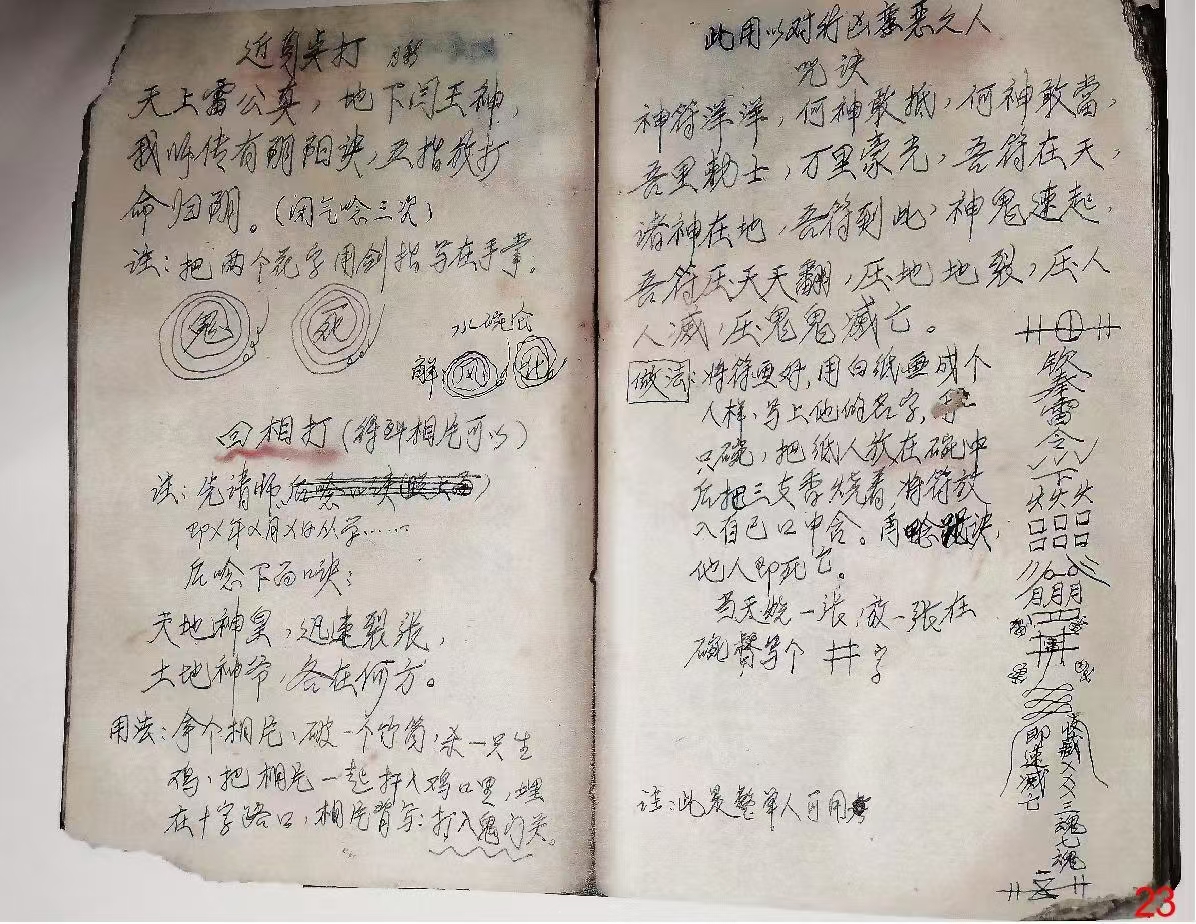 天上雷公真，地下闫王神，
我师传有阴阳诀，五指放打
命归阴。（闭气唸三次）
注：把两个花字用剑指写在手掌。
鬼 死
水碗含
解
回相打（得到相片可以）
注：先请师
即X年X月X日从学……
后唸下面口诀：
天地神皇，迅速裂张，
土地神爷，各在何方。
用法：拿个相片，破一个竹筒，杀一只生
鸡，把相片一起打入鸡口里，埋
在十字路口，相片背写：打入鬼门关。
此用以对行凶之人
咒诀
神符洋洋，何神敢抵，何神敢當，
吾里勅士，万里豪光，吾符在天，
诸神在地，吾符到此，神鬼速起，
吾符压天天翻，压地地裂，压人
人滅，压鬼鬼滅亡。
做法：将符画好，用白纸画成个
人样，写上他的名字，
只碗，把纸人放在碗中
后把三支香烧着，将符放
入自己口中含。再唸诀，
他人即死亡。
当天烧一张，放一张在
碗写个井字
注：此是整单人可用
钦奉雷令
下
火火火
口口口
口口口
月月月
井
即速滅亡
收滅XX三魂七魂
23